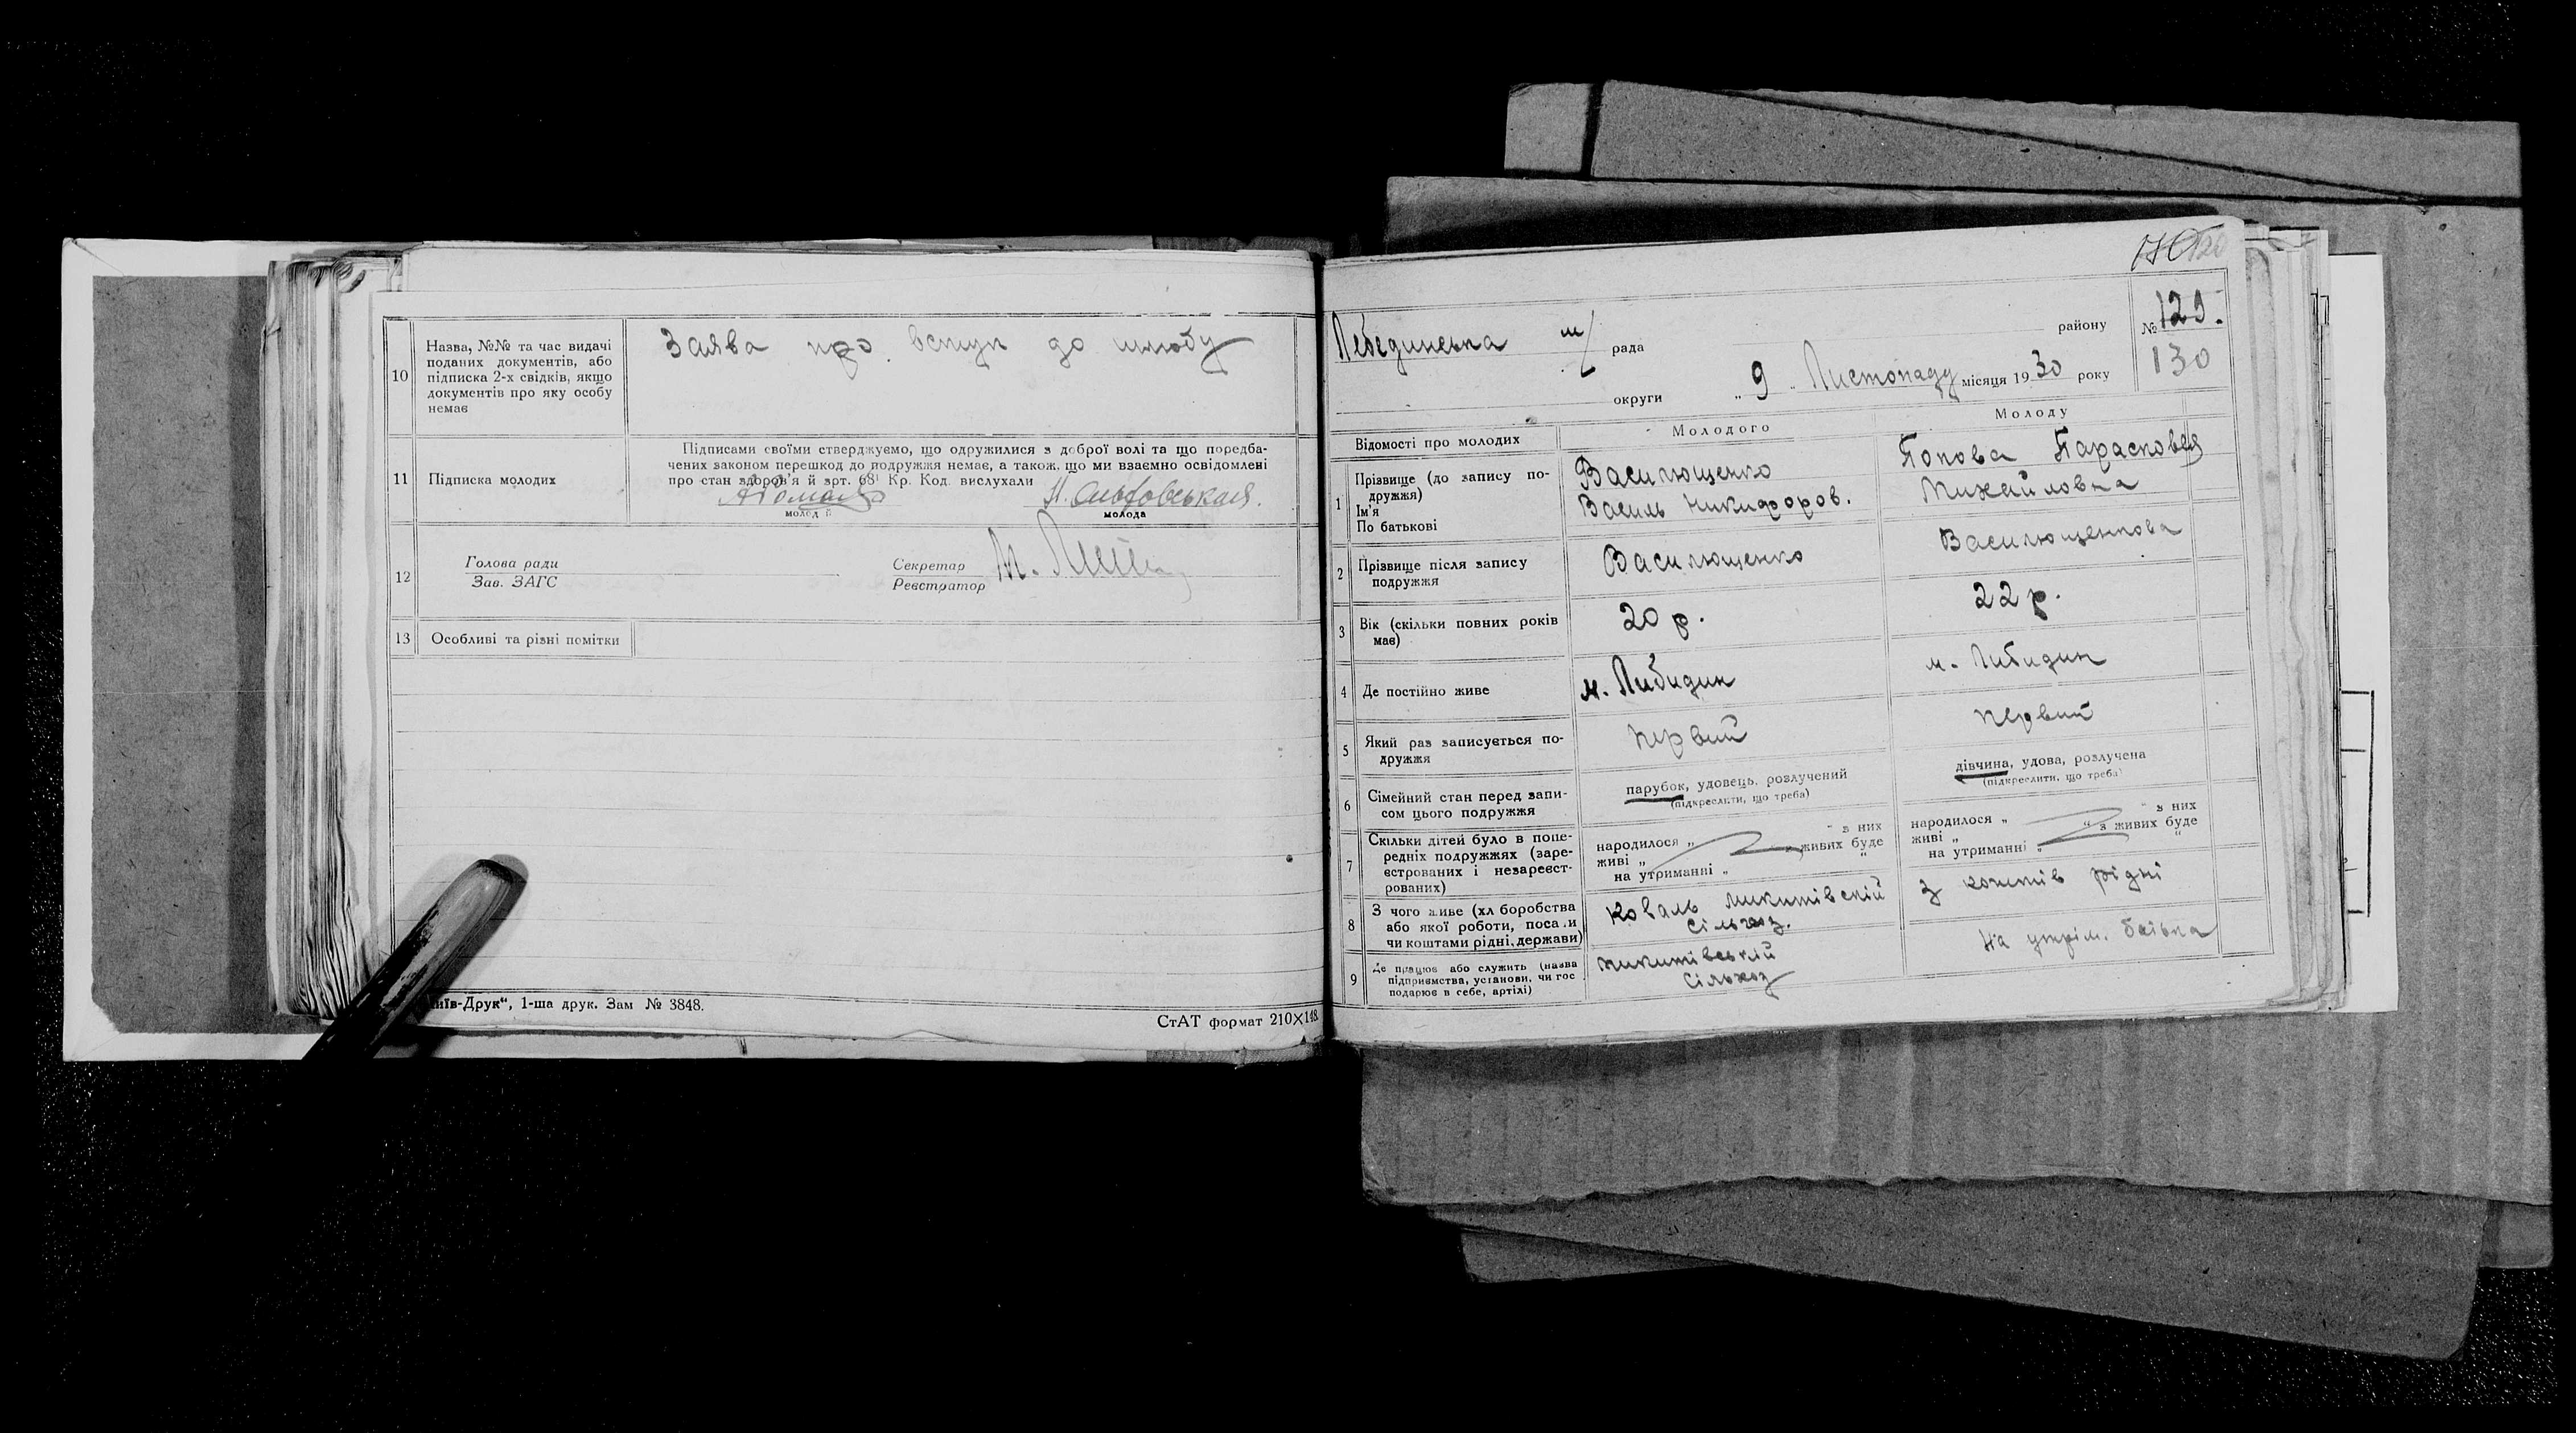 10
Назва, №№ та час видачі
поданих документів, або
підписка 2-х свідків, якщо
документів про яку особу
немає
Заява про вступ до шлюбу
11
Підписка молодих
Підписами своїми стверджуємо, що одружилися з доброї волі та що передба-
чених законом перешкод до подружжя немає, а також, що ми взаємно освідомлені
про стан здоров'я й арт. 68¹ Кр. Код. вислухали
молода
12
Голова ради
Зав. ЗАГС
Секретар
Реєстратор
13
Особливі та різні помітки
иїв-Друк“, 1-ша друк. Зам № 3848.
СтАТ формат 210×148
Лебединська м/ рада
району
№ 129.
130
округи
„ 9 „ Листопаду місяця 1930 року
Відомості про молодих
Молодого
Молоду
1
Прізвище (до запису по-
дружжя)
Ім'я
По батькові
Василющенко
Василь Никифоров.
Попова Парасковея
Михайловна
2
Прізвище після запису
подружжя
Василющенко
Василющенкова
3
Вік (скільки повних років
має)
20 р.
22 р.
4
Де постійно живе
м. Либидин
м. Либидин
5
Який раз записується по-
дружжя
первий
первий
6
Сімейний стан перед запи-
сом цього подружжя
парубок, удовець, розлучений
(підкреслити, що треба)
дівчина, удова, розлучена
(підкреслити, що треба)
7
Скільки дітей було в попе-
редніх подружжях (заре-
єстрованих і незареєст-
рованих)
народилося „ “ з них
живі „ “ живих буде
на утриманні „ “
народилося „ “ з них
живі „ “ з живих буде
на утриманні „ “
8
З чого живе (хл боробства
або якої роботи, поса и
чи коштами рідні, держави)
Коваль Микитівскій
Сільгоз.
З коштів рідні
9
Де працює або служить (назва
підприємства, установи, чи гос
подарює в себе, артілі)
Микитівський
Сільхоз
На утрім. батька